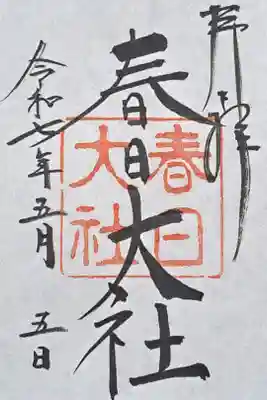 奉拝
春日大社
春日大社
令和七年五月五日